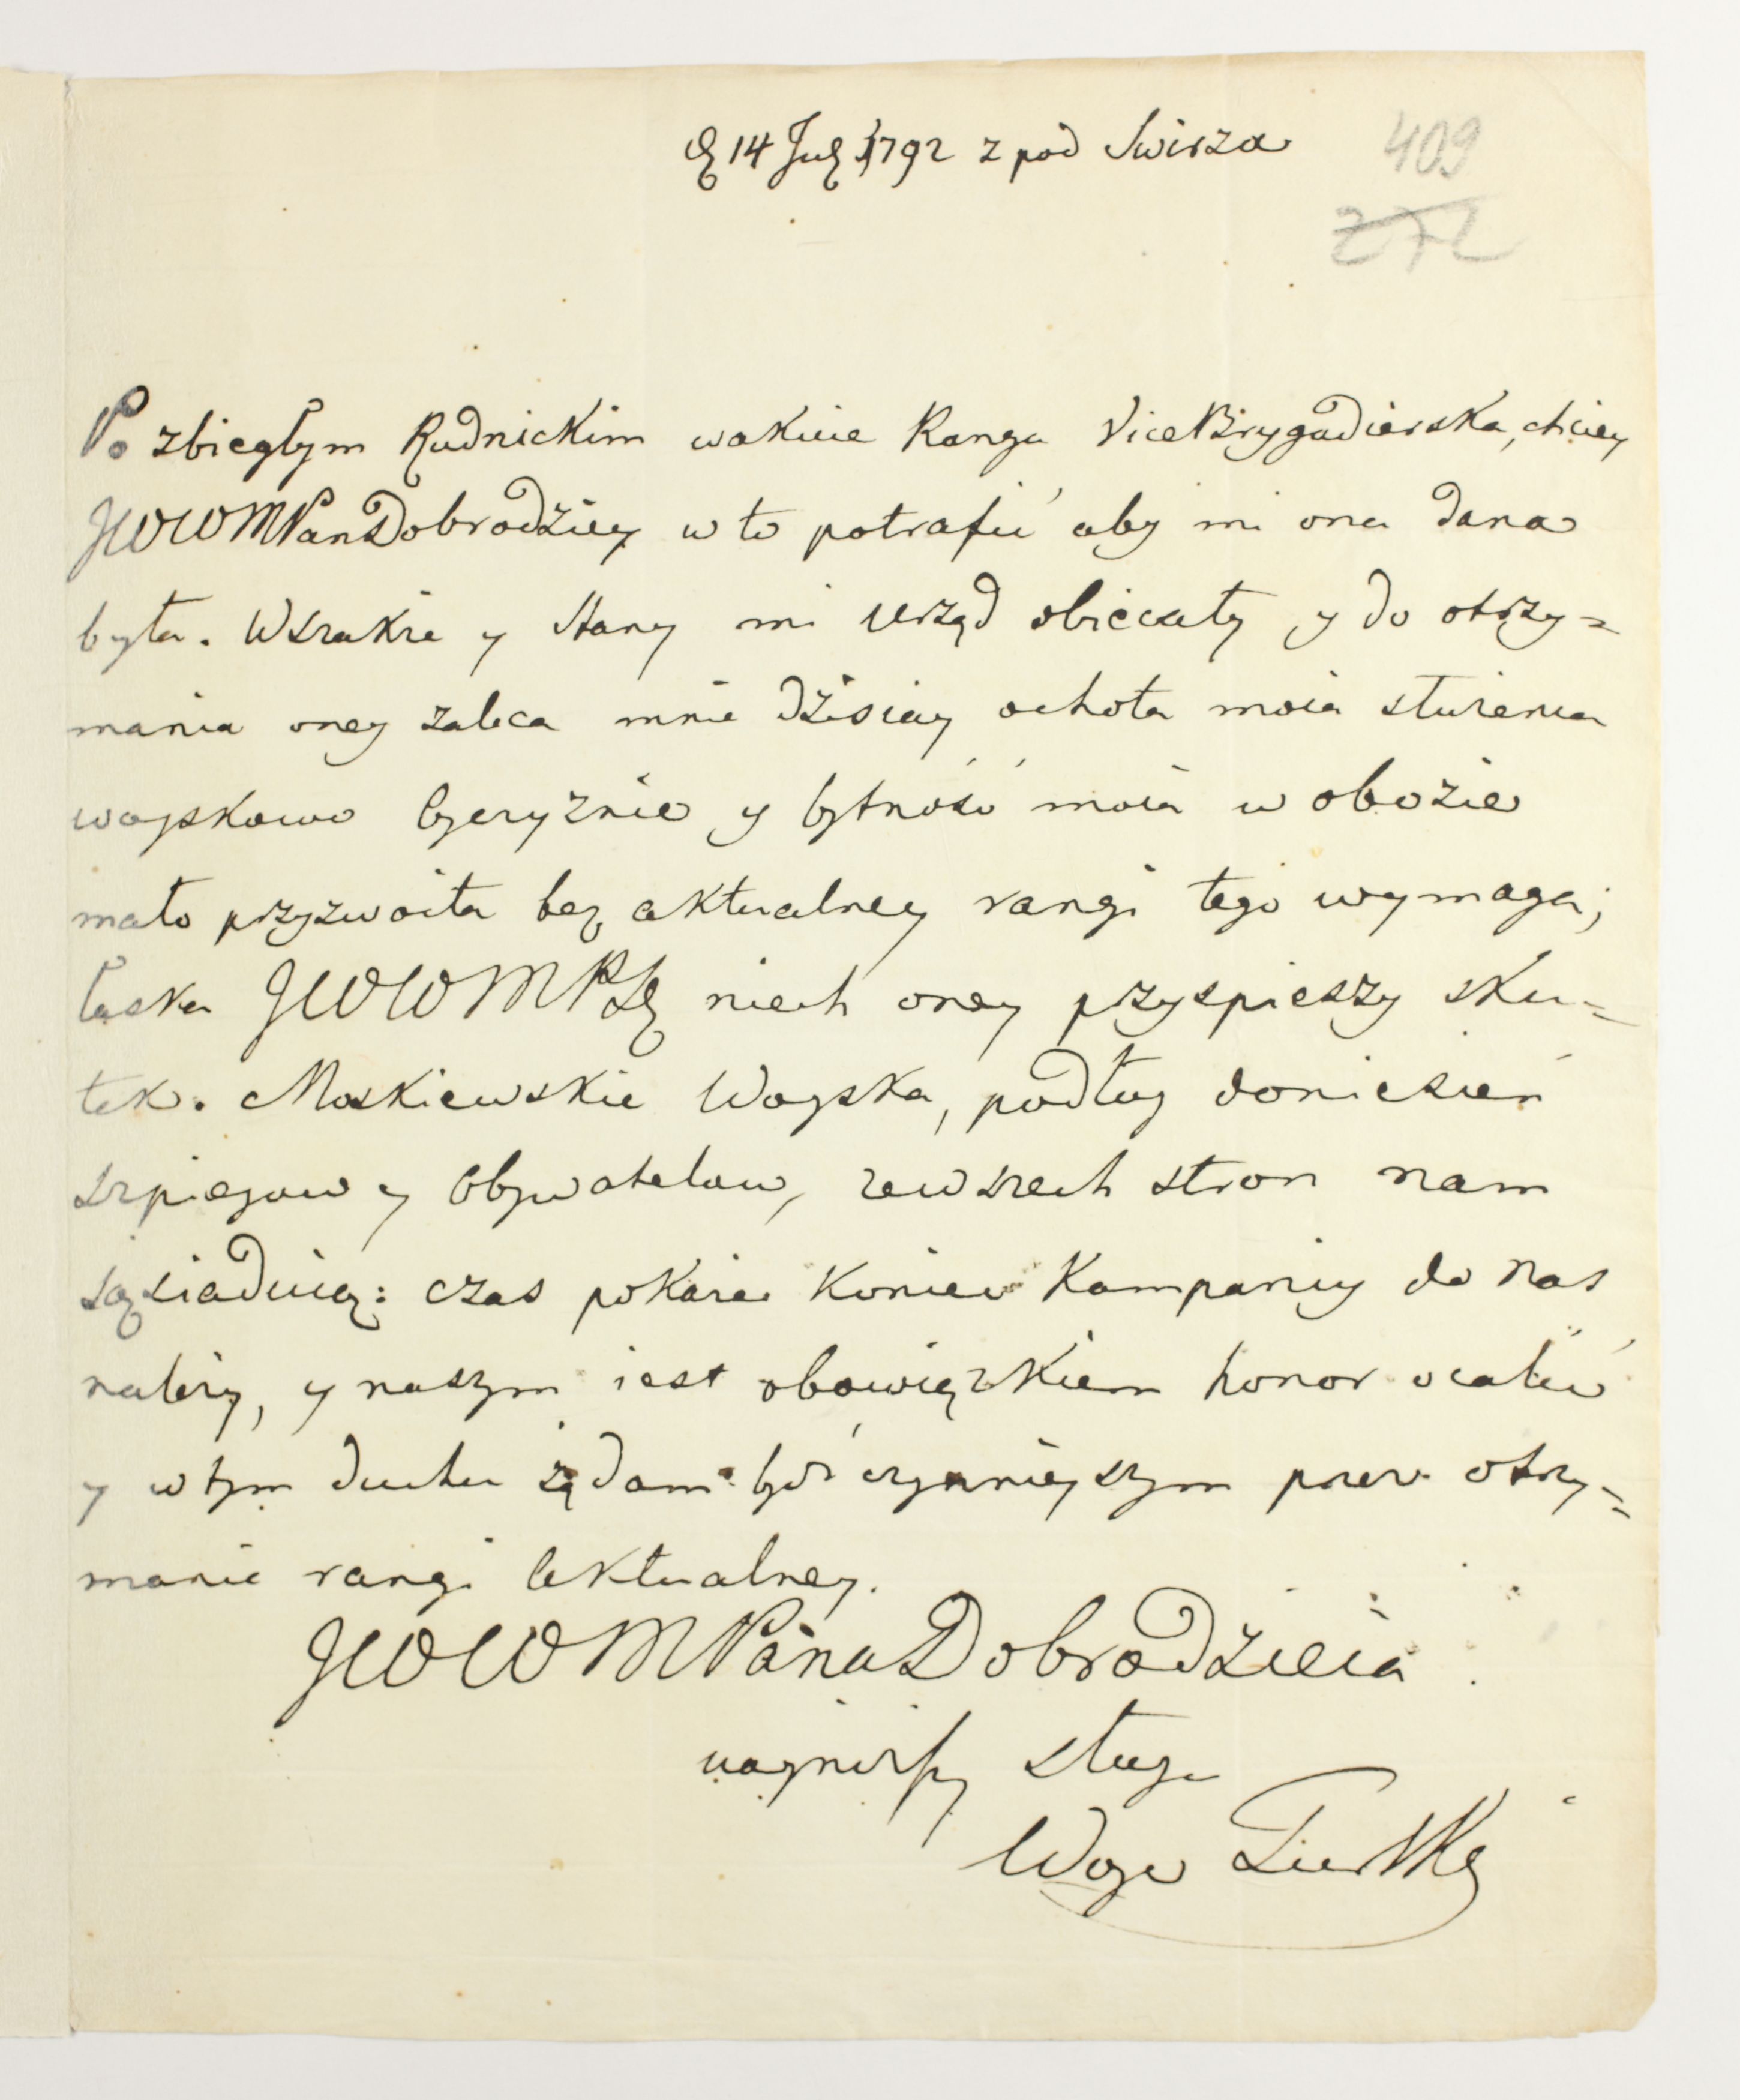 D 14 July 1792 z pod Swirza
409
272
Po zbiegłym Rudnickim wakuie Ranga ViceBrygadierska, chciey
JWWMPanDobrodziey w to potrafić aby mi ona dana
była. Wszakże y Stany mi Urząd obiecały y do otrzy=
mania oney zaleca mnie dzisiay ochota moia służenia
woyskowo Oyczyznie y bytność moia w obozie
mało przyzwoita bez aktualney rangi tego wymaga;
łaska JWWMP niech oney przyspieszy sku=
tek. Moskiewskie Woyska, podług doniesień
szpiegow y Obywatelow, zewszech stron nam
sąsiaduią: czas pokaże koniec Kampaniy do nas
należy, y naszym iest obowiązkiem honor ocalić
y w tym duchu żądam być czynnieyszym przez otrzy=
manie rangi Aktualney.
JWWMPana Dobrodzieia
nayniższy sługa
Woyc